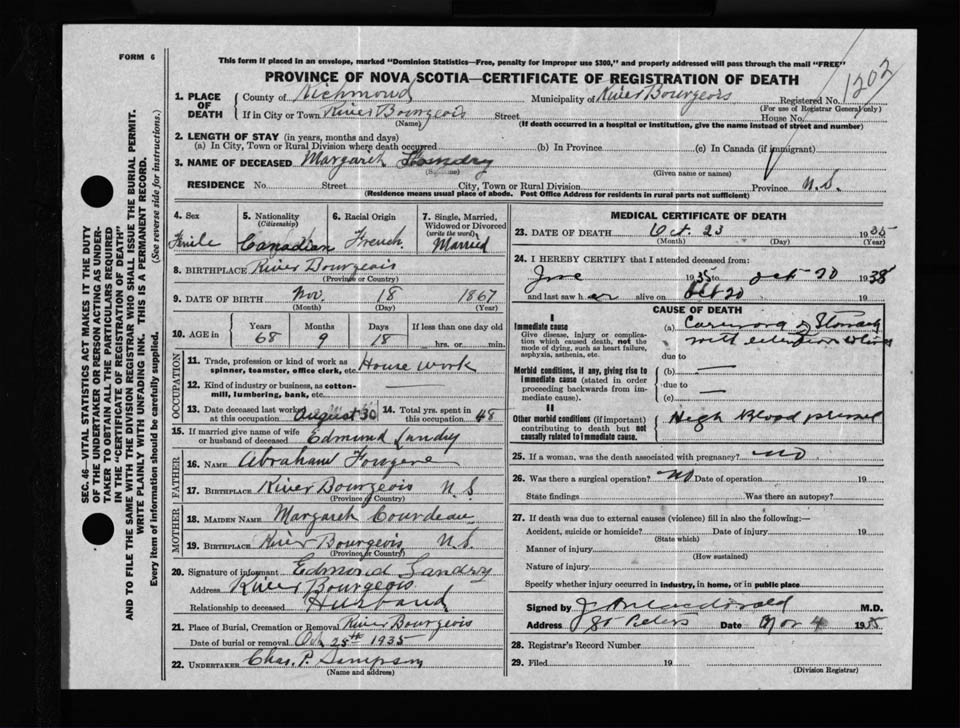 FORM 6
This form if placed in an envelope, marked "Dominion Statistics—Free, penalty for improper use $300," and properly addressed will pass through the mail "FREE"
PROVINCE OF NOVA SCOTIA—CERTIFICATE OF REGISTRATION OF DEATH
1202
1. PLACE OF DEATH { County of Richmond Municipality of River Bourgeois Registered No.
(For use of Registrar General only)
If in City or Town River Bourgeois Street House No.
(Name) (If death occurred in a hospital or institution, give the name instead of street and number)
2. LENGTH OF STAY (in years, months and days)
(a) In City, Town or Rural Division where death occurred (b) In Province (c) In Canada (if immigrant)
3. NAME OF DECEASED Margaret Landry
(Surname) (Given name or names)
RESIDENCE No. Street City, Town or Rural Division Province N.S.
(Residence means usual place of abode. Post Office Address for residents in rural parts not sufficient)
4. Sex 5. Nationality (Citizenship) 6. Racial Origin 7. Single, Married, Widowed or Divorced (write the word)
Canadian French Married
8. BIRTHPLACE River Bourgeois
(Province or Country)
9. DATE OF BIRTH Nov. 18 1867
(Month) (Day) (Year)
10. AGE in Years Months Days If less than one day old
68 9 18 hrs. or min.
OCCUPATION
11. Trade, profession or kind of work as spinner, teamster, office clerk, etc. House work
12. Kind of industry or business, as cotton-mill, lumbering, bank, etc. —
13. Date deceased last worked at this occupation August 30 14. Total yrs. spent in this occupation 48
15. If married give name of wife or husband of deceased Edmund Landry
FATHER
16. NAME Abraham Fougere
17. BIRTHPLACE River Bourgeois N.S.
(Province or Country)
MOTHER
18. MAIDEN NAME Margaret
19. BIRTHPLACE River Bourgeois N.S.
(Province or Country)
20. Signature of informant Edmond Landry
Address River Bourgeois
Relationship to deceased Husband
21. Place of Burial, Cremation or Removal River Bourgeois
Date of burial or removal Oct 25th 1935
22. UNDERTAKER Chas. P. Simpson
(Name and address)
MEDICAL CERTIFICATE OF DEATH
23. DATE OF DEATH Oct. 23 1935
(Month) (Day) (Year)
24. I HEREBY CERTIFY that I attended deceased from:
June 1935 to Oct 20 1935
and last saw her alive on Oct 20 19
CAUSE OF DEATH
I
Immediate cause
Give disease, injury or complication which caused death, not the mode of dying, such as heart failure, asphyxia, asthenia, etc.
(a) of Stomach
with extension to
due to
Morbid conditions, if any, giving rise to immediate cause (stated in order proceeding backwards from immediate cause).
(b) —
due to —
(c) —
II
Other morbid conditions (if important) contributing to death but not causally related to immediate cause.
High Blood
25. If a woman, was the death associated with pregnancy? no
26. Was there a surgical operation? No Date of operation 19
State findings Was there an autopsy?
27. If death was due to external causes (violence) fill in also the following:—
Accident, suicide or homicide? Date of injury 19
(State which)
Manner of injury
(How sustained)
Nature of injury
Specify whether injury occurred in industry, in home, or in public place
Signed by J. A. Macdonald M.D.
Address St Peters Date Nov 4 1935
28. Registrar's Record Number
29. Filed 19
(Division Registrar)
SEC. 46—VITAL STATISTICS ACT MAKES IT THE DUTY
OF THE UNDERTAKER OR PERSON ACTING AS UNDER-
TAKER TO OBTAIN ALL THE PARTICULARS REQUIRED
IN THE "CERTIFICATE OF REGISTRATION OF DEATH"
AND TO FILE THE SAME WITH THE DIVISION REGISTRAR WHO SHALL ISSUE THE BURIAL PERMIT.
WRITE PLAINLY WITH UNFADING INK. THIS IS A PERMANENT RECORD.
Every item of information should be carefully supplied. (See reverse side for instructions.)